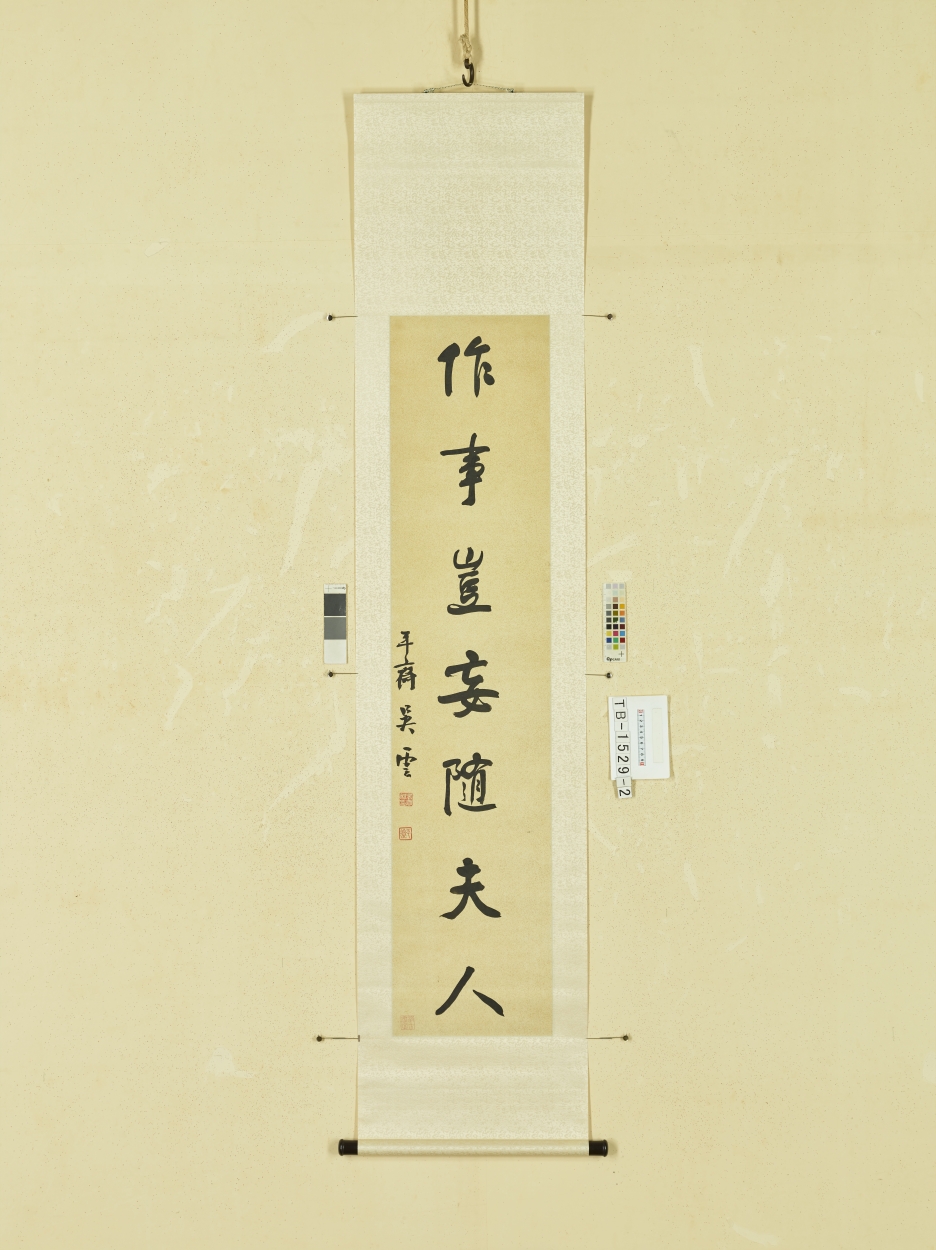 作事豈妄隨夫人
平齋吳雲
TB-1529-2